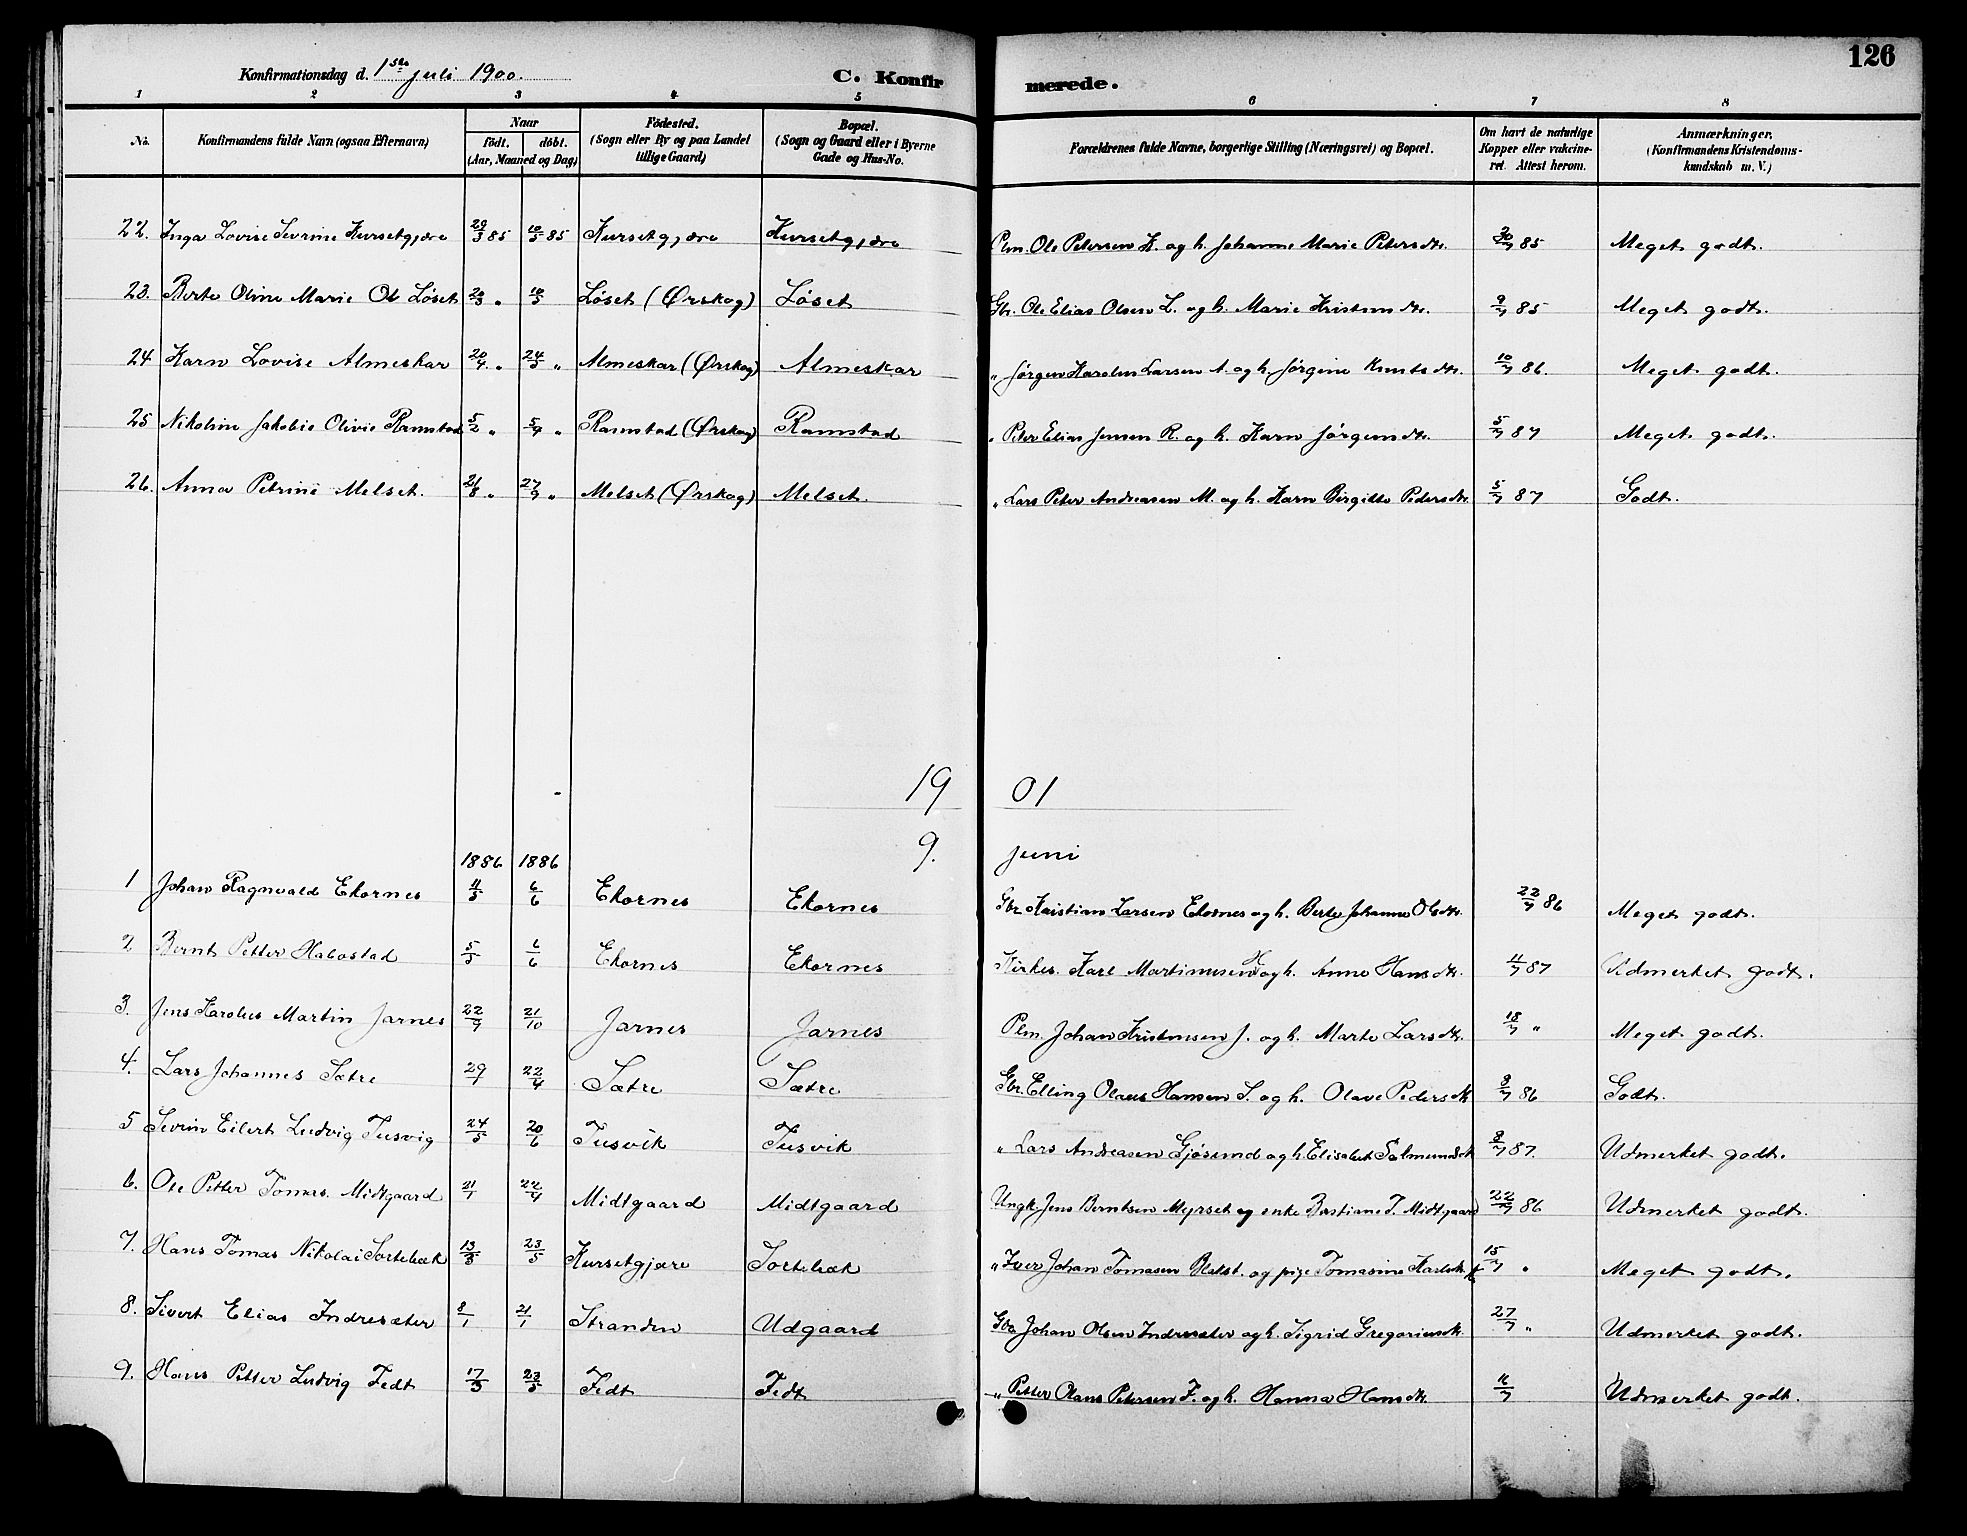 126
Konfirmationsdag d. 1ste juli 1900. C. Konfirmerede.
1 2 3 4 5 6 7 8
No. Konfirmandens fulde Navn (ogsaa Efternavn) Naar födt. döbt. (Aar, Maaned og Dag) Födested. (Sogn eller By og paa Landet tillige Gaard) Bopæl. (Sogn og Gaard eller i Byerne Gade og Hus-No. Forældrenes fulde Navne, borgerlige Stilling (Næringsvei) og Bopæl. Om havt de naturlige Kopper eller vakcineret. Attest herom. Anmærkninger. (Konfirmandens Kristendomskundskab m. V.)
22. Inga Lovise Sevrine Hursetgjære 29/3 85 10/5 85 Hursetgjære Hursetgjære Plm. Ole Petersen H. og h. Johanne Marie Petersdtr. 85 Meget godt.
23. Berte Oline Marie Ols Løset 20/3 " 10/5 Løset (Ørskog) Løset Gbr. Ole Elias Olsen L. og h. Marie Kristensdtr. 9/7 85 Meget godt.
24 Karn Lovise Almeskar 20/4 " 24/5 " Almeskar (Ørskog) Almeskar " Jørgen Karolus Larsen A. og h. Jørgine Knutsdtr. 10/7 86. Meget godt.
25 Nikoline Jakobie Olivie Ramstad 5/2 " 5/4 " Ramstad (Ørskog) Ramstad " Peter Elias Jensen R. og h. Karn Jørgensdtr. 5/7 87 Meget godt.
26. Anna Petrine Melset. 21/8 " 27/9 " Melset (Ørskog) Melset. " Lars Peter Andreasen M. og h. Karn Birgitte Pedersdtr. 5/7 87 Godt.
1901
9. juni
1886 1886
1 Johan Ragnvald Ekornes 11/5 6/6 Ekornes Ekornes Gbr. Kristian Larsen Ekornes og h. Berte Johanne Olsdtr. 22/7 86 Meget godt.
2 Bernt Petter Habostad 5/5 6/6 Ekornes Ekornes Kirkes. Karl Martinusen H. og h. Anne Hansdtr. 11/7 87 Udmerket godt.
3. Jens Karolus Martin Jarnes 22/9 21/10 Jarnes Jarnes Plm. Johan Kristensen J. og h. Marte Larsdtr. 18/7 " Meget godt.
4. Lars Johannes Sætre 29/1 22/4 Sætre Sætre Gbr. Elling Olaus Hansen S. og h. Olave Pedersdtr 9/7 86 Godt.
5 Sevrin Eilert Ludvig Tusvig 24/5 20/6 Tusvik Tusvik " Lars Andreasen Gjøsund og h. Elisabet Salmunsdtr 9/7 87. Udmerket godt.
6. Ole Petter Tomas. Midtgaard 21/1 22/4 Midtgaard Midtgaard Ungk. Jens Berntsen Myrset og enke Bastiane T. Midtgaard 22/7 86 Udmerket godt.
7. Hans Tomas Nikolai Sortebæk 13/3 23/5 Hursetgjære Sortebæk " Iver Johan Tomasen og pige Tomasine Karlsdtr. 15/7 " Meget godt.
8. Sivert Elias Indresæter 8/1 21/1 Stranden Udgaard Gbr. Johan Olsen Indresæter og h. Sigrid Gregoriusdtr. 27/7 " Udmerket godt.
9. Hans Petter Ludvig Fedt 17/3 23/5 Fedt Fedt " Petter Olaus Petersen F. og h. Hanna Hansdtr. 11/7 Udmerket godt.